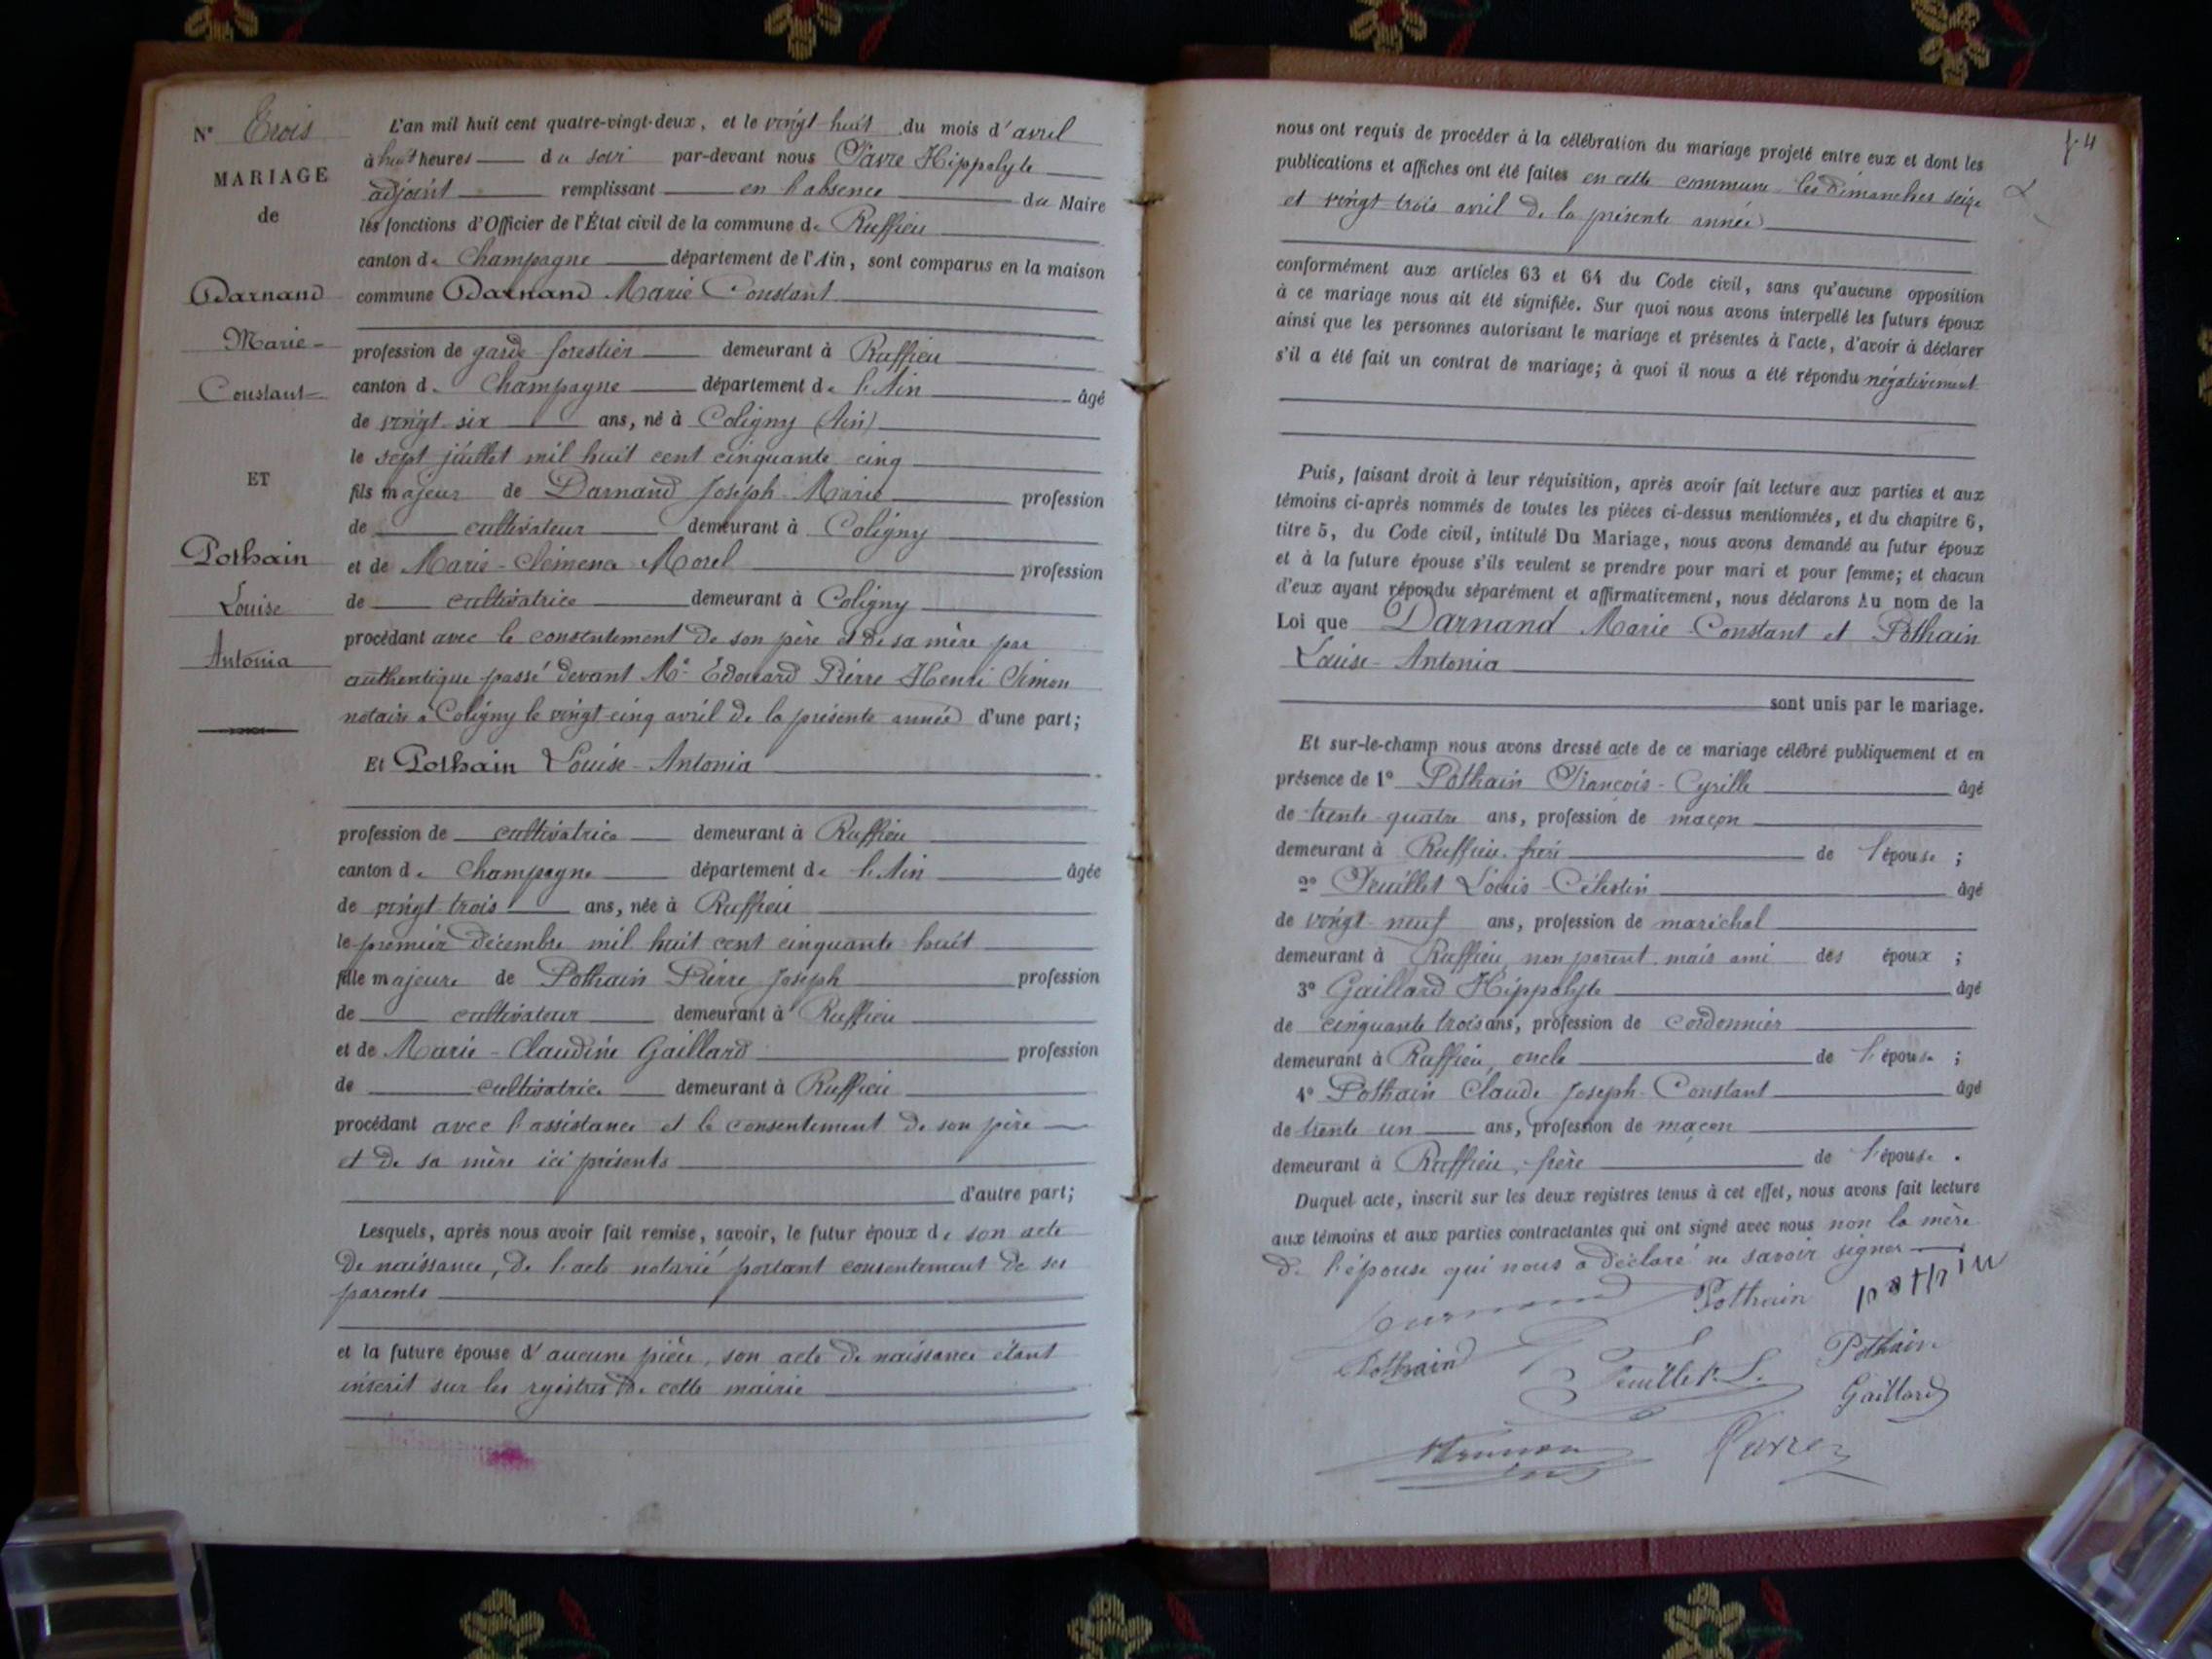 N° Trois
MARIAGE
de
Darnand
Marie-
Constant
ET
Pothain
Louise
Antonia
L'an mil huit cent quatre-vingt-deux, et le vingt-huit du mois d'avril
à huit heures du soir par-devant nous Favre Hippolyte
adjoint remplissant en l'absence du Maire
les fonctions d'Officier de l'État civil de la commune de Ruffieu
canton de Champagne département de l'Ain, sont comparus en la maison
commune Darnand Marie Constant
profession de garde forestier demeurant à Ruffieu
canton de Champagne département de l'Ain âgé
de vingt-six ans, né à Coligny (Ain)
le sept juillet mil huit cent cinquante cinq
fils majeur de Darnand Joseph-Marie profession
de cultivateur demeurant à Coligny
et de Marie-Clémena Morel profession
de cultivatrice demeurant à Coligny
procédant avec le consentement de son père et de sa mère par
authentique passé devant Me Edouard Pierre Henri Simon
notaire à Coligny le vingt-cinq avril de la présente année d'une part;
Et Pothain Louise-Antonia
profession de cultivatrice demeurant à Ruffieu
canton de Champagne département de l'Ain âgée
de vingt-trois ans, née à Ruffieu
le premier décembre mil huit cent cinquante huit
fille majeure de Pothain Pierre Joseph profession
de cultivateur demeurant à Ruffieu
et de Marie-Claudine Gaillard profession
de cultivatrice demeurant à Ruffieu
procédant avec l'assistance et le consentement de son père
et de sa mère ici présents
d'autre part;
Lesquels, après nous avoir fait remise, savoir, le futur époux de son acte
de naissance, de l'acte notarié portant consentement de ses
parents
et la future épouse d'aucune pièce, son acte de naissance étant
inscrit sur les registres de cette mairie
f. 4
nous ont requis de procéder à la célébration du mariage projeté entre eux et dont les
publications et affiches ont été faites en cette commune les dimanches seize
et vingt trois avril de la présente année
conformément aux articles 63 et 64 du Code civil, sans qu'aucune opposition
à ce mariage nous ait été signifiée. Sur quoi nous avons interpellé les futurs époux
ainsi que les personnes autorisant le mariage et présentes à l'acte, d'avoir à déclarer
s'il a été fait un contrat de mariage; à quoi il nous a été répondu négativement
Puis, faisant droit à leur réquisition, après avoir fait lecture aux parties et aux
témoins ci-après nommés de toutes les pièces ci-dessus mentionnées, et du chapitre 6,
titre 5, du Code civil, intitulé Du Mariage, nous avons demandé au futur époux
et à la future épouse s'ils veulent se prendre pour mari et pour femme; et chacun
d'eux ayant répondu séparément et affirmativement, nous déclarons Au nom de la
Loi que Darnand Marie-Constant et Pothain
Louise-Antonia
sont unis par le mariage.
Et sur-le-champ nous avons dressé acte de ce mariage célébré publiquement et en
présence de 1° Pothain François-Cyrille âgé
de trente-quatre ans, profession de maçon
demeurant à Ruffieu, frère de l'épouse ;
2° Feuillet Louis-Célestin âgé
de vingt-neuf ans, profession de maréchal
demeurant à Ruffieu, non parent mais ami des époux ;
3° Gaillard Hippolyte âgé
de cinquante trois ans, profession de cordonnier
demeurant à Ruffieu, oncle de l'épouse ;
4° Pothain Claude Joseph-Constant âgé
de trente un ans, profession de maçon
demeurant à Ruffieu, frère de l'épouse.
Duquel acte, inscrit sur les deux registres tenus à cet effet, nous avons fait lecture
aux témoins et aux parties contractantes qui ont signé avec nous non la mère
de l'épouse qui nous a déclaré ne savoir signer
Darnand Pothain
Pothain Feuillet L. Pothain
Gaillard
Favre